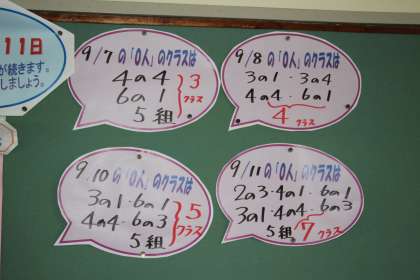 11日
が続きます。
しましょう。
9/7の「0人」のクラスは
4の4
6の1
5組
3
クラス
9/8の「0人」のクラスは
3の1・3の4
4の4・6の1
4
クラス
9/10の「0人」のクラスは
3の1・6の1
4の4・6の3
5組
5
クラス
9/11の「0人」のクラスは
2の3・4の1・6の1
3の1・4の4・6の3
5組
7
クラス